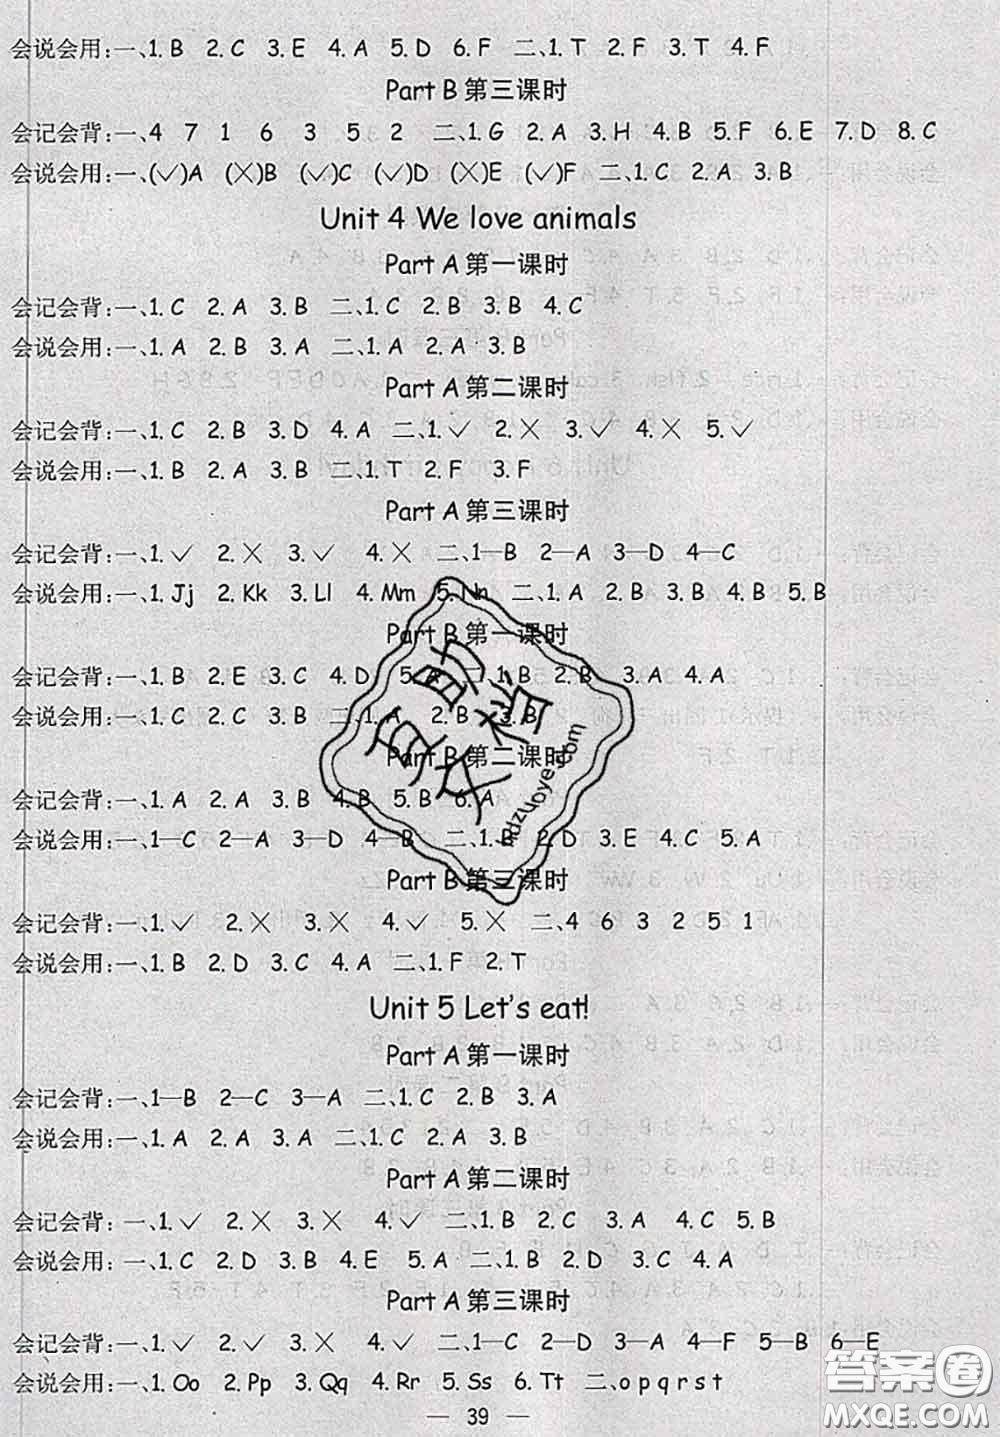 会说会用:一、1.B 2.C 3.E 4.A 5.D 6.F 二、1.T 2.F 3.T 4.F
Part B 第三课时
会记会背:一、4 7 1 6 3 5 2 二、1.G 2.A 3.H 4.B 5.F 6.E 7.D 8.C
会说会用:一、(✓)A (✗)B (✓)C (✓)D (✗)E (✓)F 二、1.C 2.A 3.B
Unit 4 We love animals
Part A 第一课时
会记会背:一、1.C 2.A 3.B 二、1.C 2.B 3.B 4.C
会说会用:一、1.A 2.B 3.A 二、1.A 2.A 3.B
Part A 第二课时
会记会背:一、1.C 2.B 3.D 4.A 二、1.✓ 2.✗ 3.✓ 4.✗ 5.✓
会说会用:一、1.B 2.A 3.B 二、1.T 2.F 3.F
Part A 第三课时
会记会背:一、1.✓ 2.✗ 3.✓ 4.✗ 二、1—B 2—A 3—D 4—C
会说会用:一、1.Jj 2.Kk 3.Ll 4.Mm 5.Nn 二、1.A 2.B 3.B 4.B 5.B
Part B 第一课时
会记会背:一、1.B 2.E 3.C 4.D 5.A 二、1.B 2.B 3.A 4.A
会说会用:一、1.C 2.C 3.B 二、1.A 2.B 3.B
Part B 第二课时
会记会背:一、1.A 2.A 3.B 4.B 5.B 6.A
会说会用:一、1—C 2—A 3—D 4—B 二、1.B 2.D 3.E 4.C 5.A
Part B 第三课时
会记会背:一、1.✓ 2.✗ 3.✗ 4.✓ 5.✗ 二、4 6 3 2 5 1
会说会用:一、1.B 2.D 3.C 4.A 二、1.F 2.T
Unit 5 Let's eat!
Part A 第一课时
会记会背:一、1—B 2—C 3—A 二、1.C 2.B 3.A
会说会用:一、1.A 2.A 3.A 二、1.C 2.A 3.B
Part A 第二课时
会记会背:一、1.✓ 2.✗ 3.✗ 4.✓ 二、1.B 2.C 3.A 4.C 5.B
会说会用:一、1.C 2.D 3.B 4.E 5.A 二、1.B 2.D 3.C 4.A
Part A 第三课时
会记会背:一、1.✓ 2.✓ 3.✗ 4.✓ 二、1—C 2—D 3—A 4—F 5—B 6—E
会说会用:一、1.Oo 2.Pp 3.Qq 4.Rr 5.Ss 6.Tt 二、o p q r s t
— 39 —
答案圈
MXQE.COM